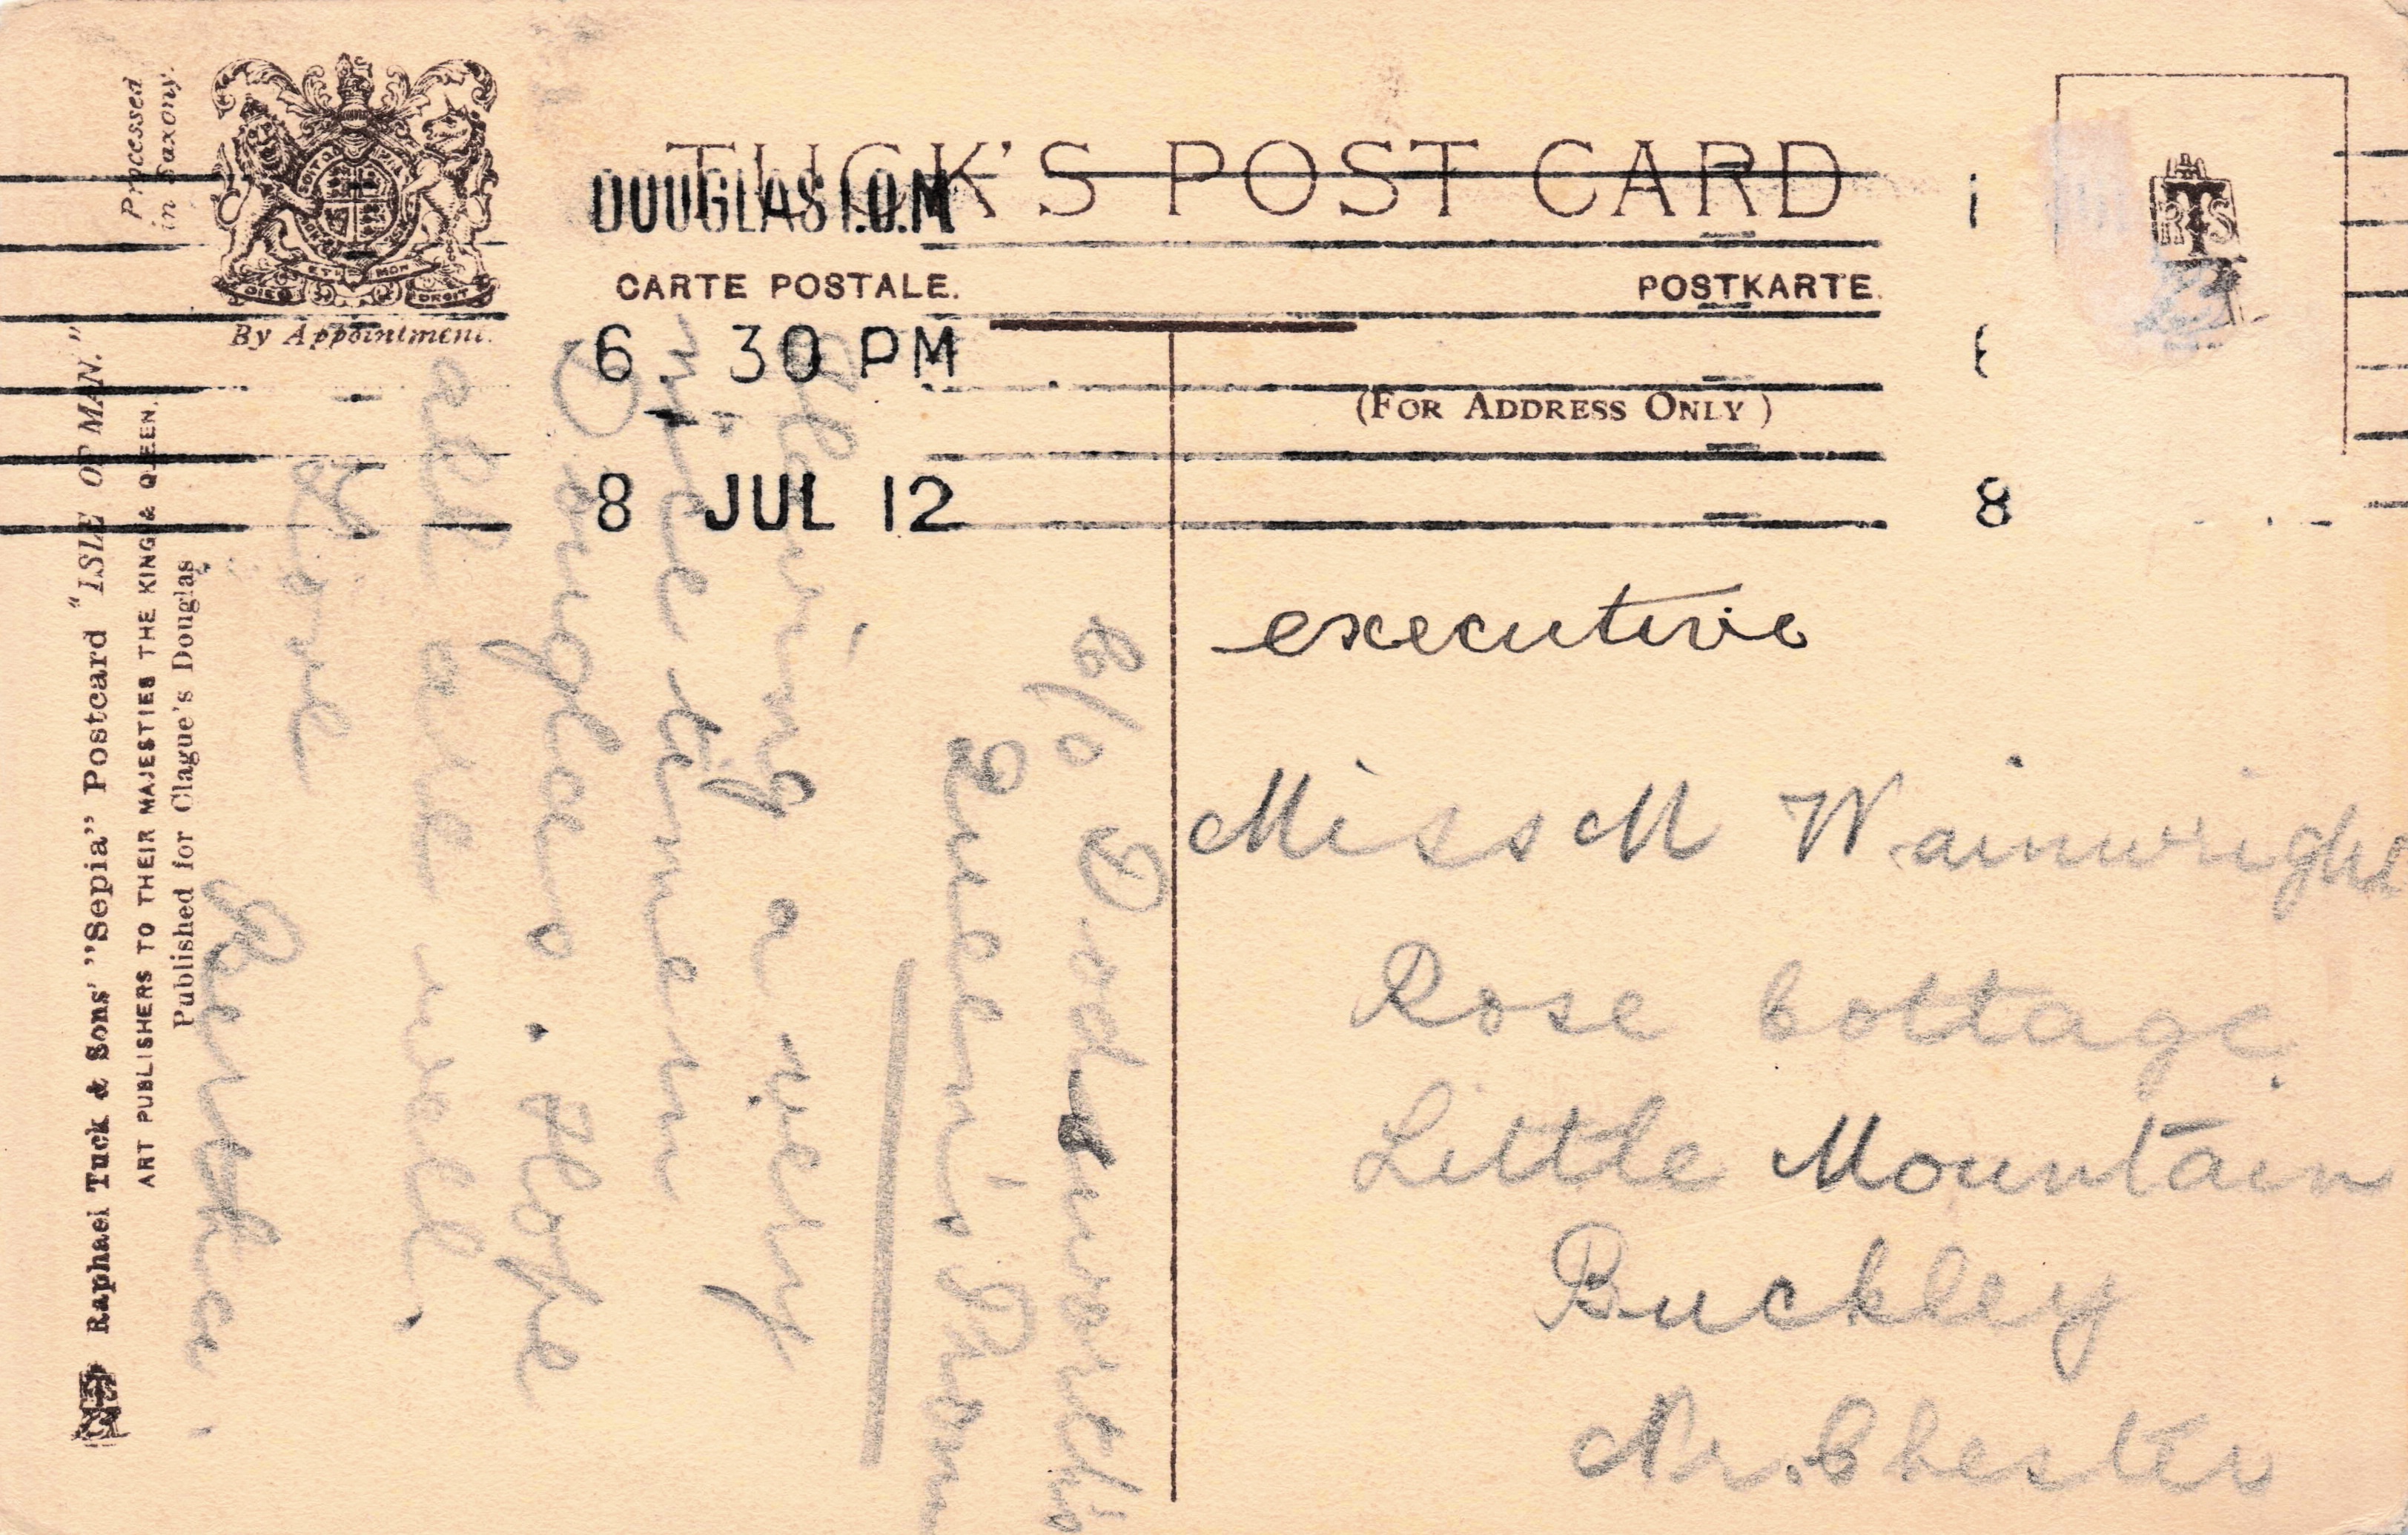 Processed
in Saxony.
By Appointment.
DIEU ET MON DROIT
TUCK'S POST CARD
DOUGLAS I.O.M
CARTE POSTALE. POSTKARTE.
6. 30 PM
(FOR ADDRESS ONLY)
8 JUL 12
8
RTS
executive
Miss M Wainwright
Rose Cottage
Little Mountain
Buckley
Nr. Chester
C/o Dodsworth's
Queen's Prom
Having a very
nice time in
Douglas. Hope
all are well.
Love
Bertha.
Raphael Tuck & Sons' "Sepia" Postcard "ISLE OF MAN."
ART PUBLISHERS TO THEIR MAJESTIES THE KING & QUEEN.
Published for Clague's Douglas